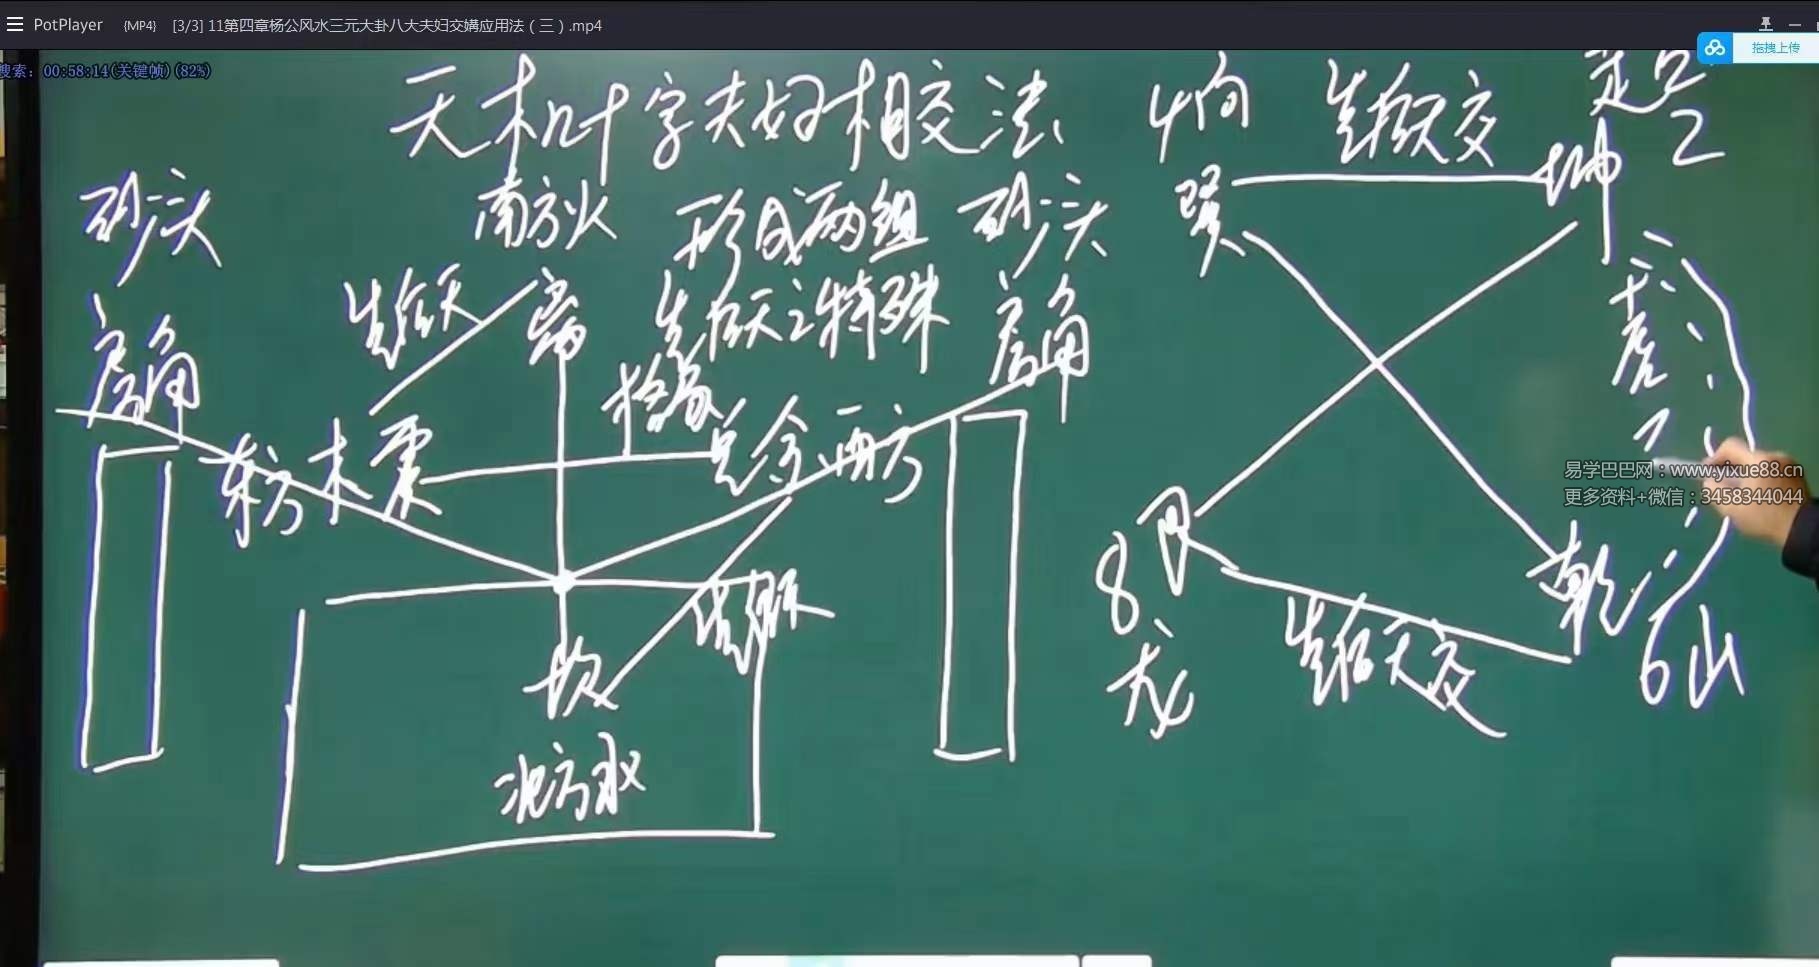 PotPlayer {MP4} [3/3] 11第四章杨公风水三元大卦八大夫妇交媾应用法（三）.mp4
拖拽上传
搜索：00:58:14(关键帧)(82%)
天木几十字夫妇相交法
砂尖
房角
南方火
先后天
离
形成两组
先后天之特殊
砂尖
房角
东方木震
兑金西方
坎
北方水
4向
巽
先后天交
坤
2
8
艮
龙
先后天交
乾
6山
易学巴巴网：www.yixue88.cn
更多资料+微信：3458344044